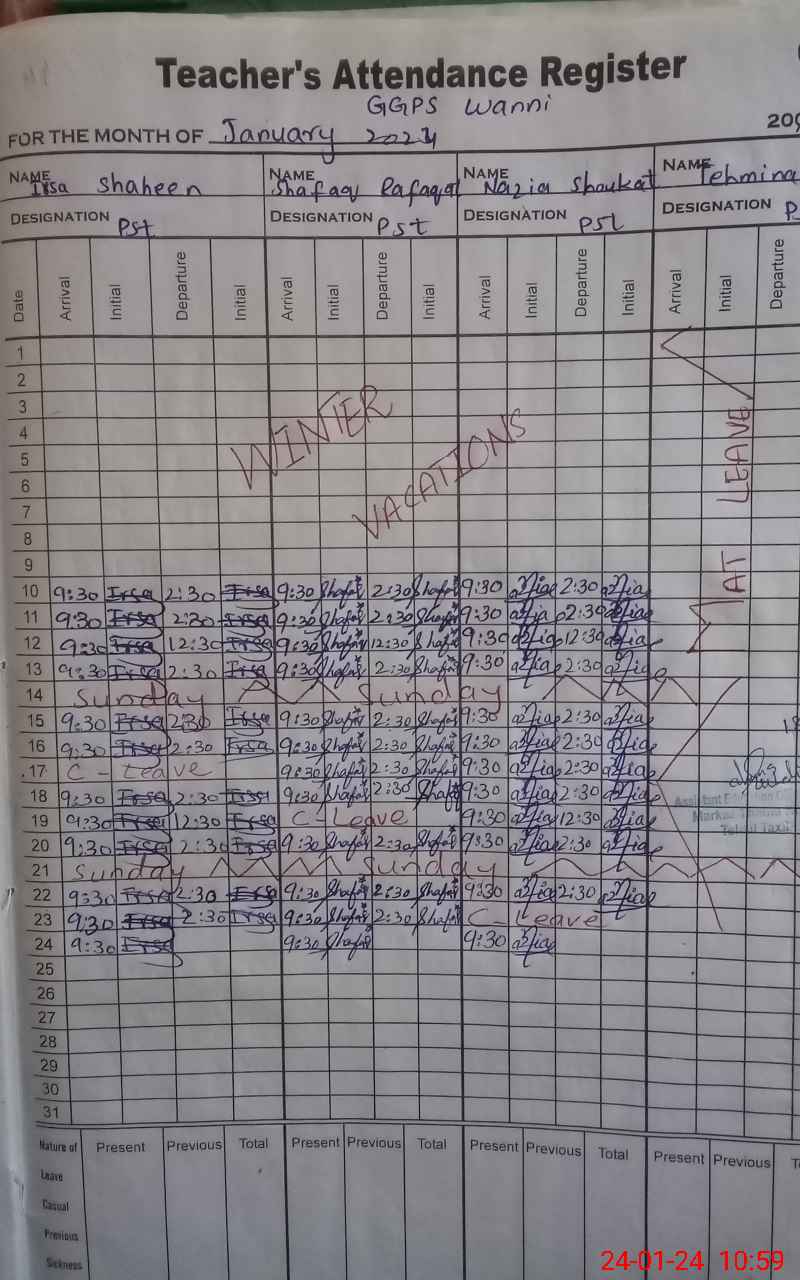 Teacher's Attendance Register
GGPS Wanni
FOR THE MONTH OF January 2024 200
NAME Irsa Shaheen NAME Shafaq Rafaqat NAME Nazia Shaukat NAME Tehmina
DESIGNATION Pst DESIGNATION Pst DESIGNATION Pst DESIGNATION P
Date Arrival Initial Departure Initial Arrival Initial Departure Initial Arrival Initial Departure Initial Arrival Initial Departure
1
2
3
4
5
6
7
8
9
WINTER
VACATIONS
LEAVE
10 9:30 Irsa 2:30 Irsa 9:30 Shafaq 2:30 Shafaq 9:30 2:30
11 9:30 Irsa 2:30 Irsa 9:30 Shafaq 2:30 Shafaq 9:30 2:30
12 9:30 Irsa 12:30 Irsa 9:30 Shafaq 12:30 Shafaq 9:30 12:30
13 9:30 Irsa 2:30 Irsa 9:30 Shafaq 2:30 Shafaq 9:30 2:30
14 Sunday Sunday
15 9:30 Irsa 2:30 Irsa 9:30 Shafaq 2:30 Shafaq 9:30 2:30
16 9:30 Irsa 2:30 Irsa 9:30 Shafaq 2:30 Shafaq 9:30 2:30
17 C-Leave 9:30 Shafaq 2:30 Shafaq 9:30 2:30
18 9:30 Irsa 2:30 Irsa 9:30 Shafaq 2:30 Shafaq 9:30 2:30
19 9:30 Irsa 12:30 Irsa C-Leave 9:30 12:30
20 9:30 Irsa 2:30 Irsa 9:30 Shafaq 2:30 Shafaq 9:30 2:30
21 Sunday Sunday
22 9:30 Irsa 2:30 Irsa 9:30 Shafaq 2:30 Shafaq 9:30 2:30
23 9:30 Irsa 2:30 Irsa 9:30 Shafaq 2:30 Shafaq C-Leave
24 9:30 Irsa 9:30 Shafaq 9:30
25
26
27
28
29
30
31
Assistant
Markaz
Tehsil Taxila
Nature of Present Previous Total Present Previous Total Present Previous Total Present Previous
Leave
Casual
Previous
Sickness
24-01-24 10:59